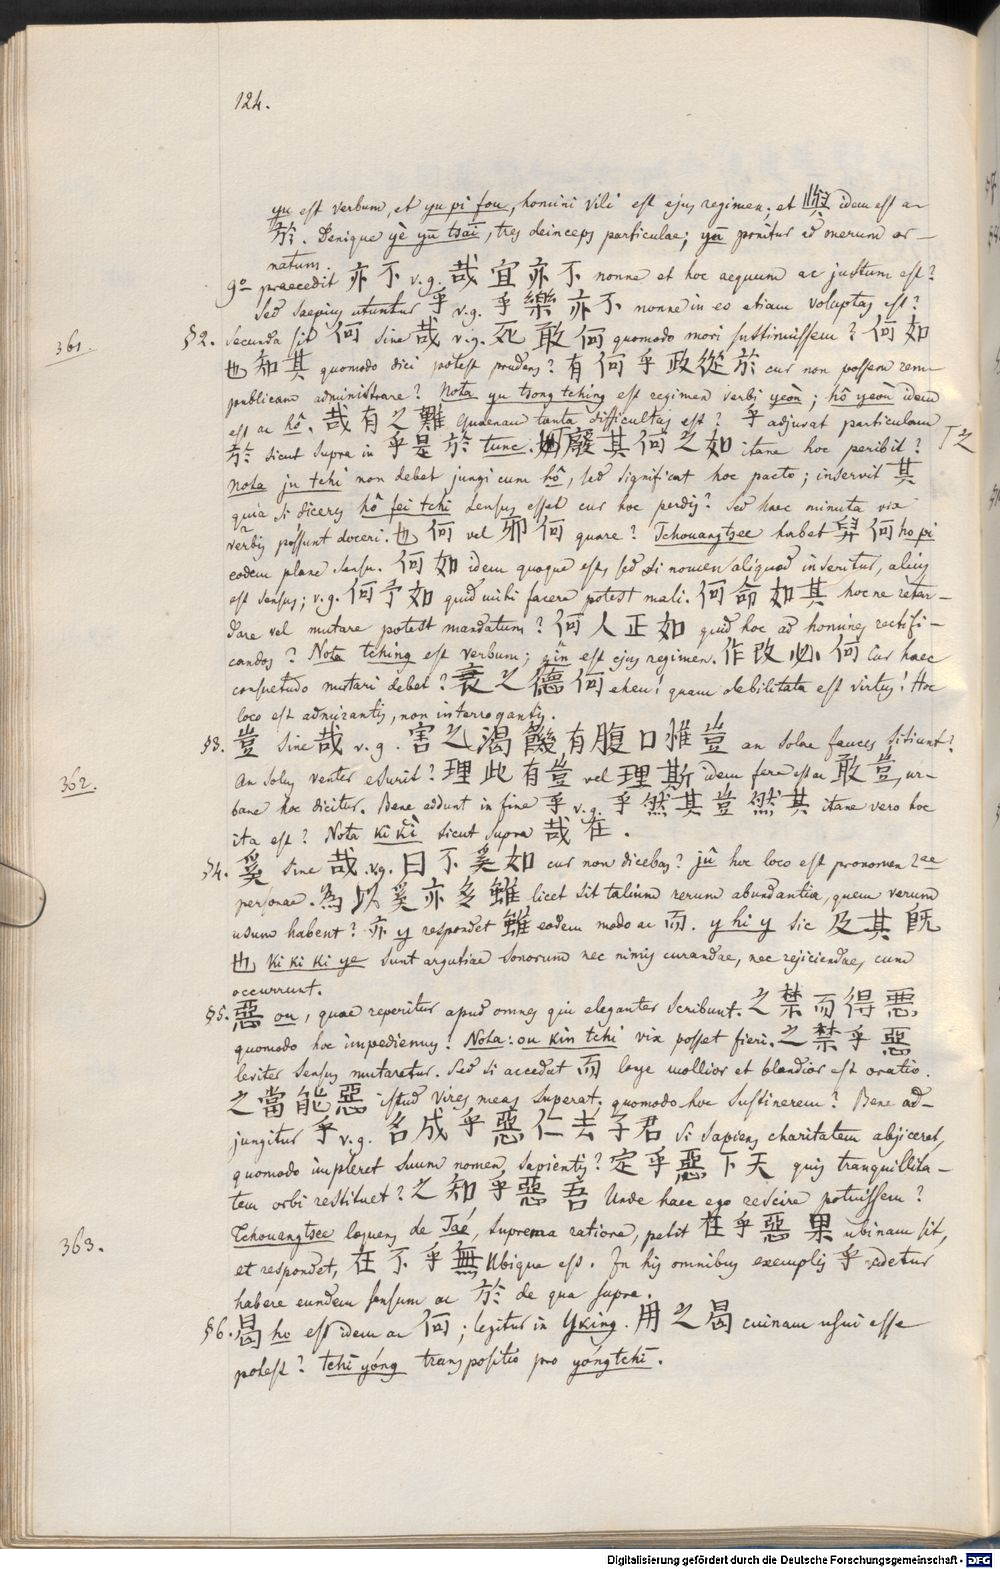 124.
yu est verbum, et yu pi fou, homini vili est ejus regimen; et 與 idem est ac
於. Denique yè yū tsaī, tres deinceps particulae; yū ponitur ad merum or-
natum.
9º praecedit 亦不 v.g. 哉宜亦不 nonne et hoc aequum ac justum est?
Sed saepius utuntur 乎 v.g. 乎樂亦不 nonne in eo etiam voluptas est?
361. §2. Secunda sit 何 sine 哉 v.g. 死敢何 quomodo mori sustinuissem? 何如
也知其 quomodo dici potest prudens? 有何乎政從於 cur non possem rem-
publicam administrare? Nota yu tsong tching est regimen verbi yeòu; hô yeòu idem
est ac hô. 哉有之難 Quaenam tanta difficultas est? 乎 adjuvat particulam
於 sicut supra in 乎是於 tunc. 廢其何之如 itane hoc peribit? 之
Nota ju tchi non debet jungi cum hô, sed significat hoc pacto; inservit 其
quia si diceres hô fei tchi sensus esset cur hoc perdis? Sed haec minuta vix
verbis possunt doceri. 也何 vel 邪何 quare? Tchouangtsee habet 何 ho pi
eodem plane sensu. 何如 idem quoque est, sed si nomen aliquod inseritur, alius
est sensus; v.g. 何予如 quid mihi facere potest mali. 何命如其 hoc ne retar-
dare vel mutare potest mandatum? 何人正如 quid hoc ad homines rectifi-
candos? Nota tching est verbum; gîn est ejus regimen. 作改必何 Cur haec
consuetudo mutari debet? 衰之德何 eheu! quam debilitata est virtus! Hoc
loco est admirantis, non interrogantis.
§3. 豈 sine 哉 v.g. 害之渴饑有腹口惟豈 an solae fauces sitiunt?
362. An solus venter esurit? 理此有豈 vel 理斯 idem fere est ac 敢豈, ur-
bane hoc dicitur. Bene addunt in fine 乎 v.g. 乎然其豈然其 itane vero hoc
ita est? Nota Kî Kì sicut supra 哉在.
§4. 奚 sine 哉 v.g. 曰不奚如 cur non dicebas? jù hoc loco est pronomen 2ae
personae. 為以奚亦多雖 licet sit talium rerum abundantia, quem verum
usum habent? 亦 y respondet 雖 eodem modo ac 而. y hi y sic 及其旣
也 Ki Ki Ki ye sunt argutiae sonorum nec nimis curandae, nec rejiciendae, cum
occurrunt.
§5. 惡 ou, quae reperitur apud omnes qui eleganter scribunt. 之禁而得惡
quomodo hoc impediemus? Nota: ou kin tchi vix posset fieri. 之禁乎惡
leviter sensus mutaretur. Sed si accedat 而 longe mollior et blandior est oratio.
之當能惡 istud vires meas superat, quomodo hoc sustinerem? Bene ad-
jungitur 乎 v.g. 名成乎惡仁去子君 Si sapiens charitatem abjiceret,
quomodo impleret suum nomen sapientis? 定乎惡下天 quis tranquillita-
tem orbi restituet? 之知乎惡吾 Unde haec ego rescire potuissem?
363. Tchouangtsee loquens de Taé, suprema ratione, petit 在乎惡果 ubinam sit,
et respondet, 在不乎無 Ubique est. In his omnibus exemplis 乎 videtur
habere eundem sensum ac 於 de qua supra.
§6. 曷 ho est idem ac 何; legitur in Yking. 用之曷 cuinam usui esse
potest? tchī yóng transpositio pro yóng tchī.
Digitalisierung gefördert durch die Deutsche Forschungsgemeinschaft - DFG